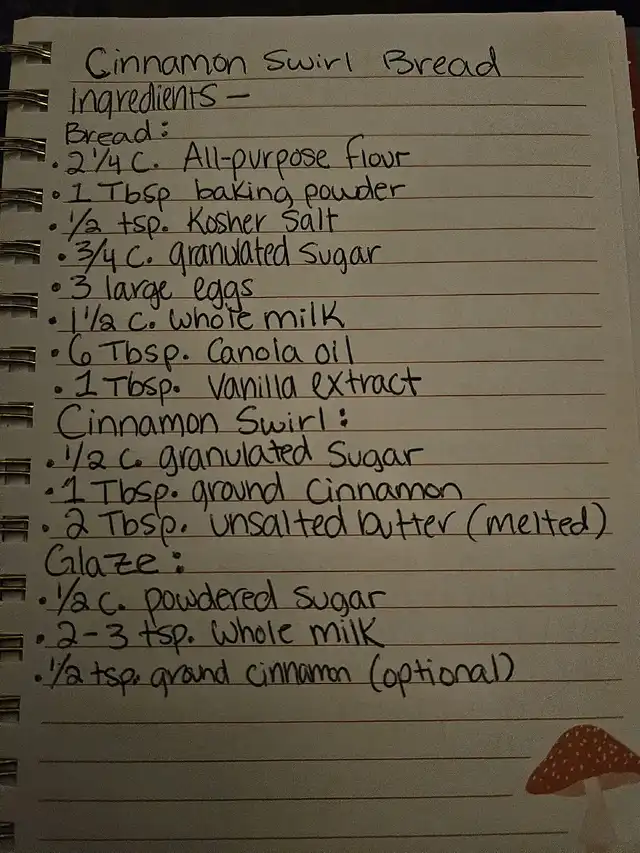 Cinnamon Swirl Bread
Ingredients -
Bread:
• 2 1/4 C. All-purpose flour
• 1 Tbsp baking powder
• 1/2 tsp. Kosher Salt
• 3/4 C. granulated Sugar
• 3 large eggs
• 1 1/2 C. Whole milk
• 6 Tbsp. Canola oil
• 1 Tbsp. Vanilla extract
Cinnamon Swirl:
• 1/2 C. granulated Sugar
• 1 Tbsp. ground Cinnamon
• 2 Tbsp. unsalted butter (melted)
Glaze:
• 1/2 C. powdered Sugar
• 2-3 tsp. Whole milk
• 1/2 tsp. ground cinnamon (optional)